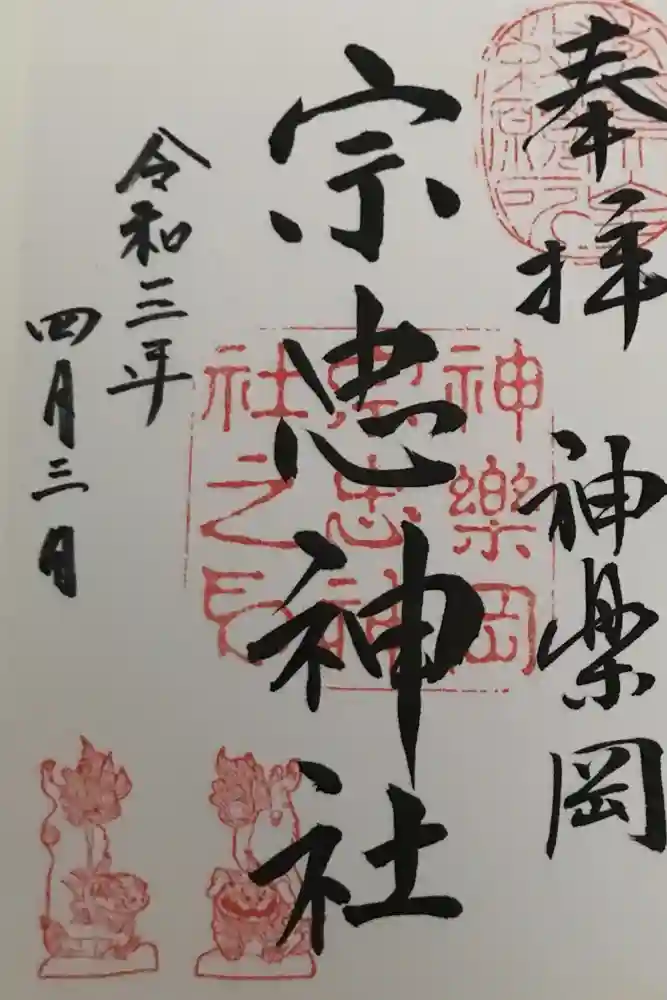 奉拝 神楽岡
宗忠神社
神樂岡
宗忠神
社之印
令和三年
四月三日